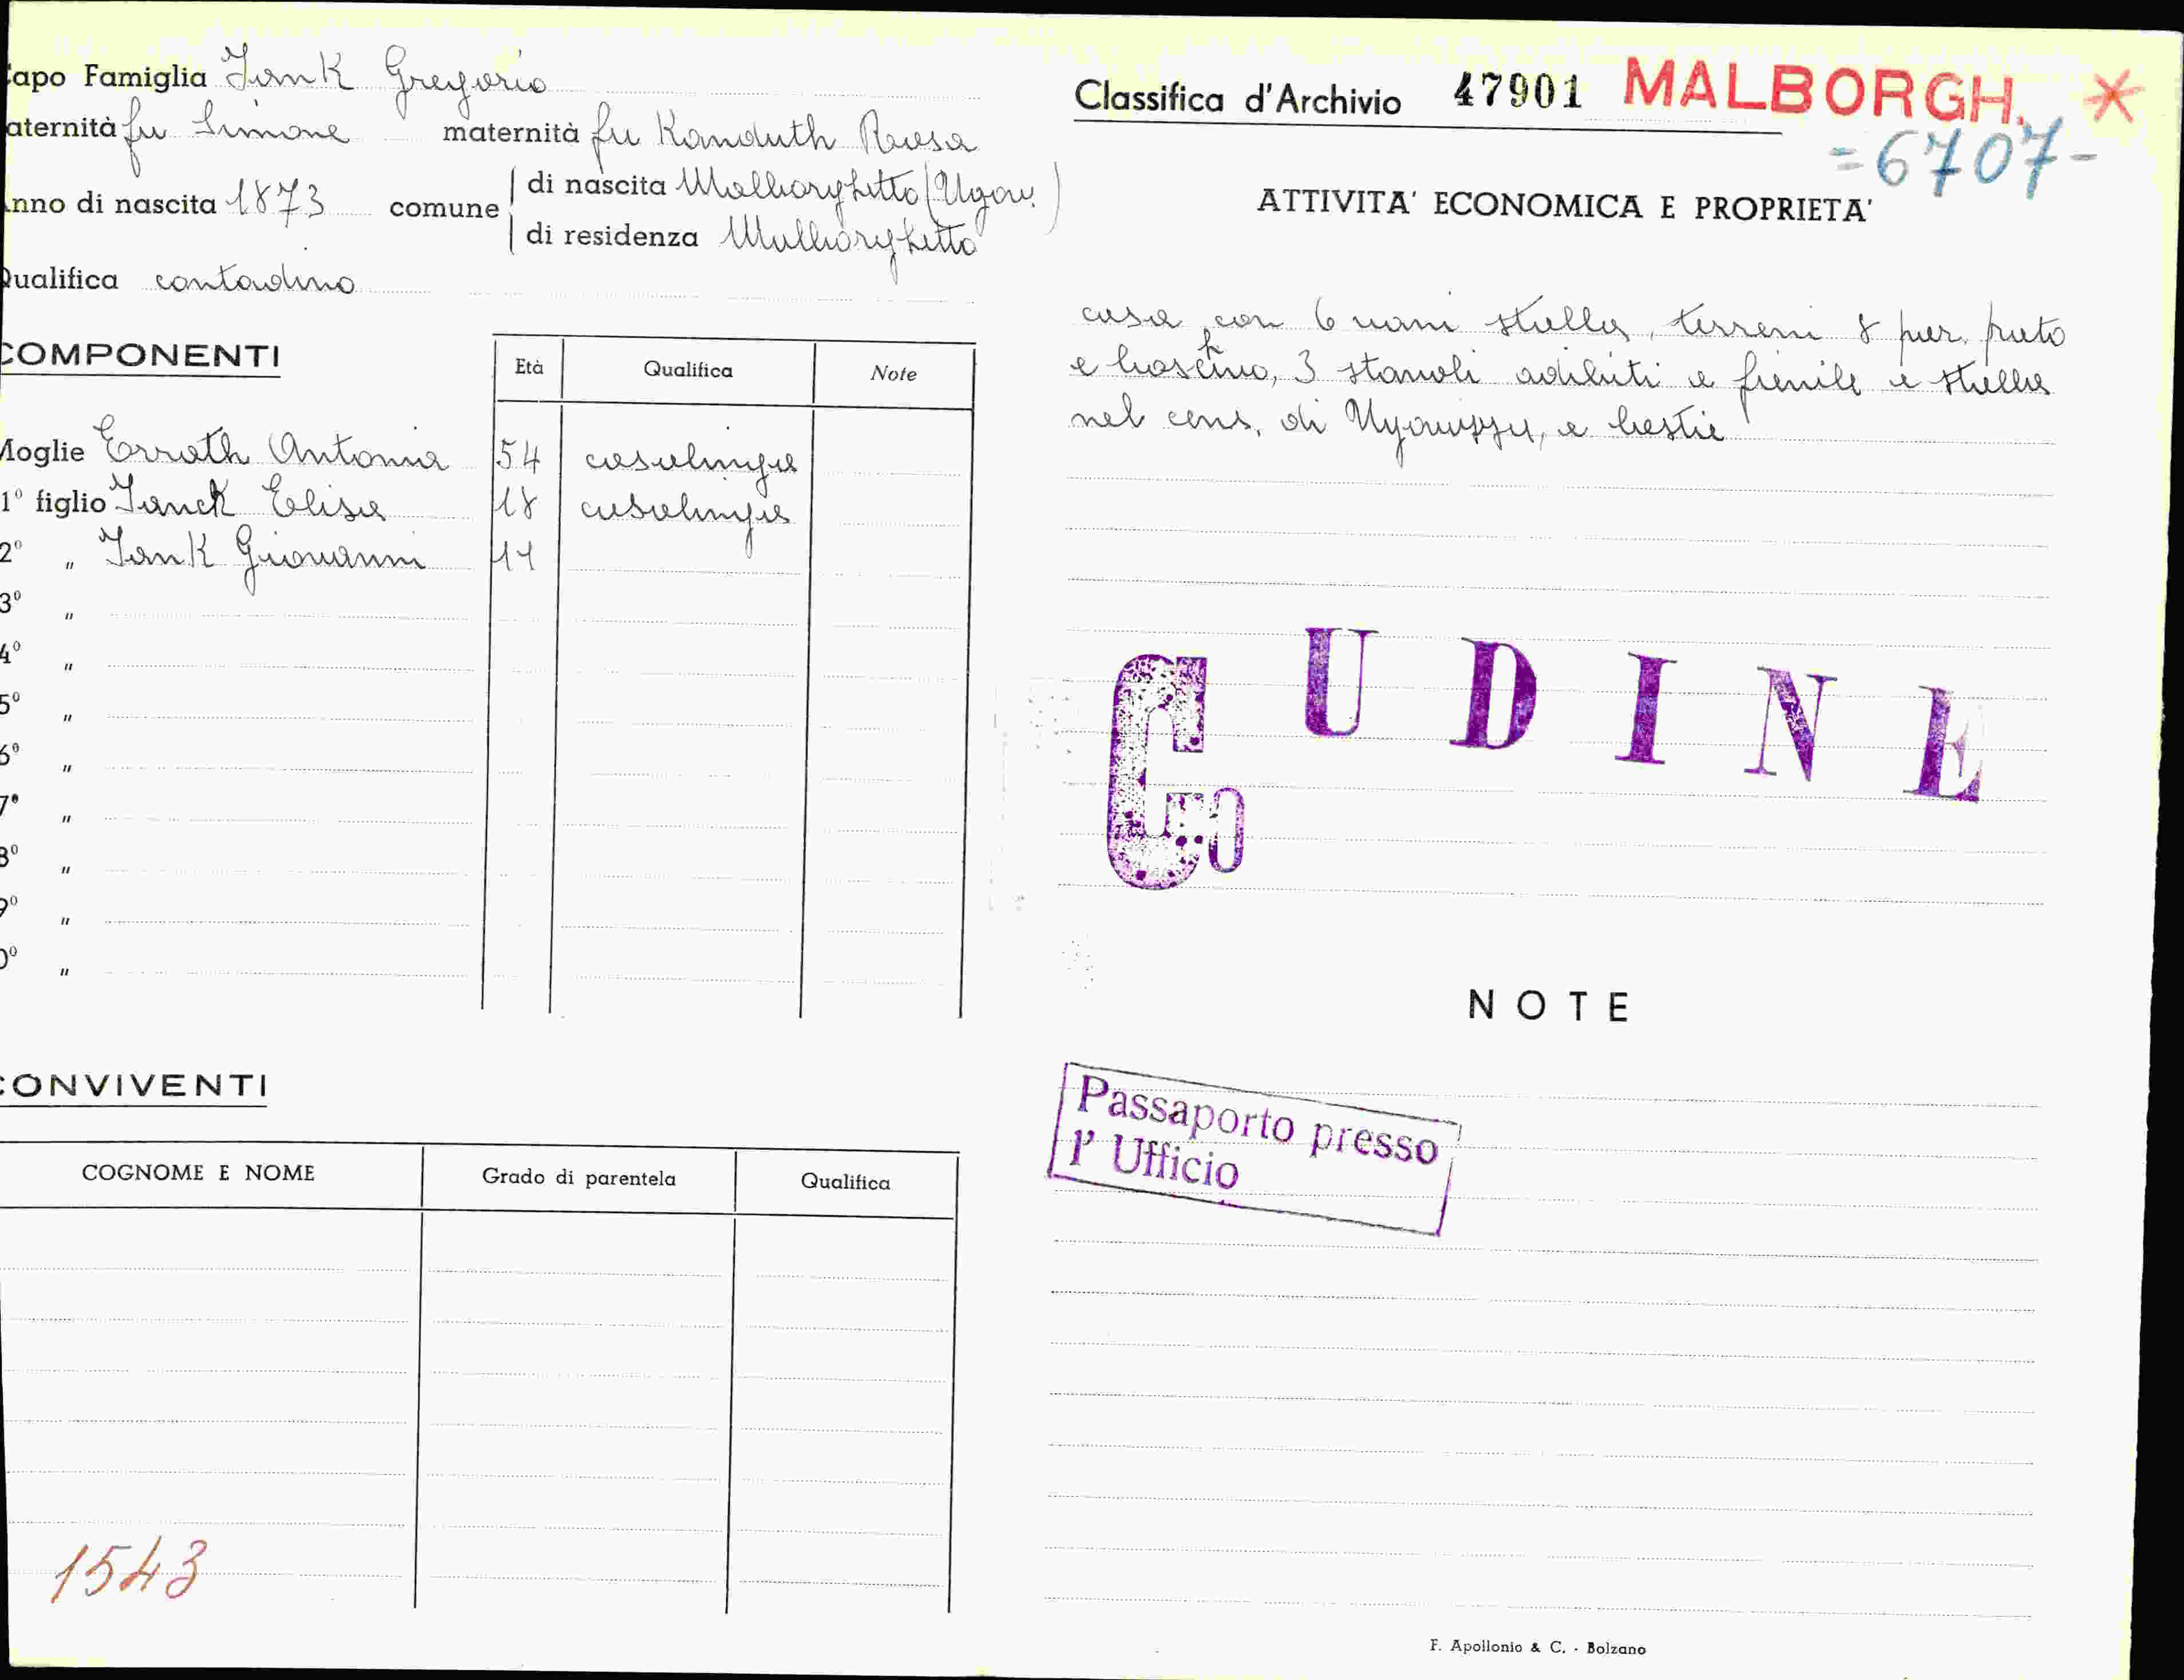 apo Famiglia Jank Gregorio
aternità fu Simone maternità fu Kanduth Rosa
nno di nascita 1873 comune di nascita Malborghetto (Ugov.)
di residenza Malborghetto
Qualifica contadino
COMPONENTI
Età Qualifica Note
Moglie Errath Antonia 54 casalinga
1º figlio Janck Elisa 18 casalinga
2º " Jank Giovanni 11
3º "
4º "
5º "
6º "
7º "
8º "
9º "
0º "
CONVIVENTI
COGNOME E NOME Grado di parentela Qualifica
1543
Classifica d'Archivio 47901 MALBORGH. *
=6707-
ATTIVITA' ECONOMICA E PROPRIETA'
casa con 6 vani stalla, terreni 8 par. prato
e boschivo, 3 stavoli adibiti a fienile e stalla
nel cens. di Ugovizza, e bestie
UDINE
NOTE
Passaporto presso
l' Ufficio
F. Apollonio & C. - Bolzano